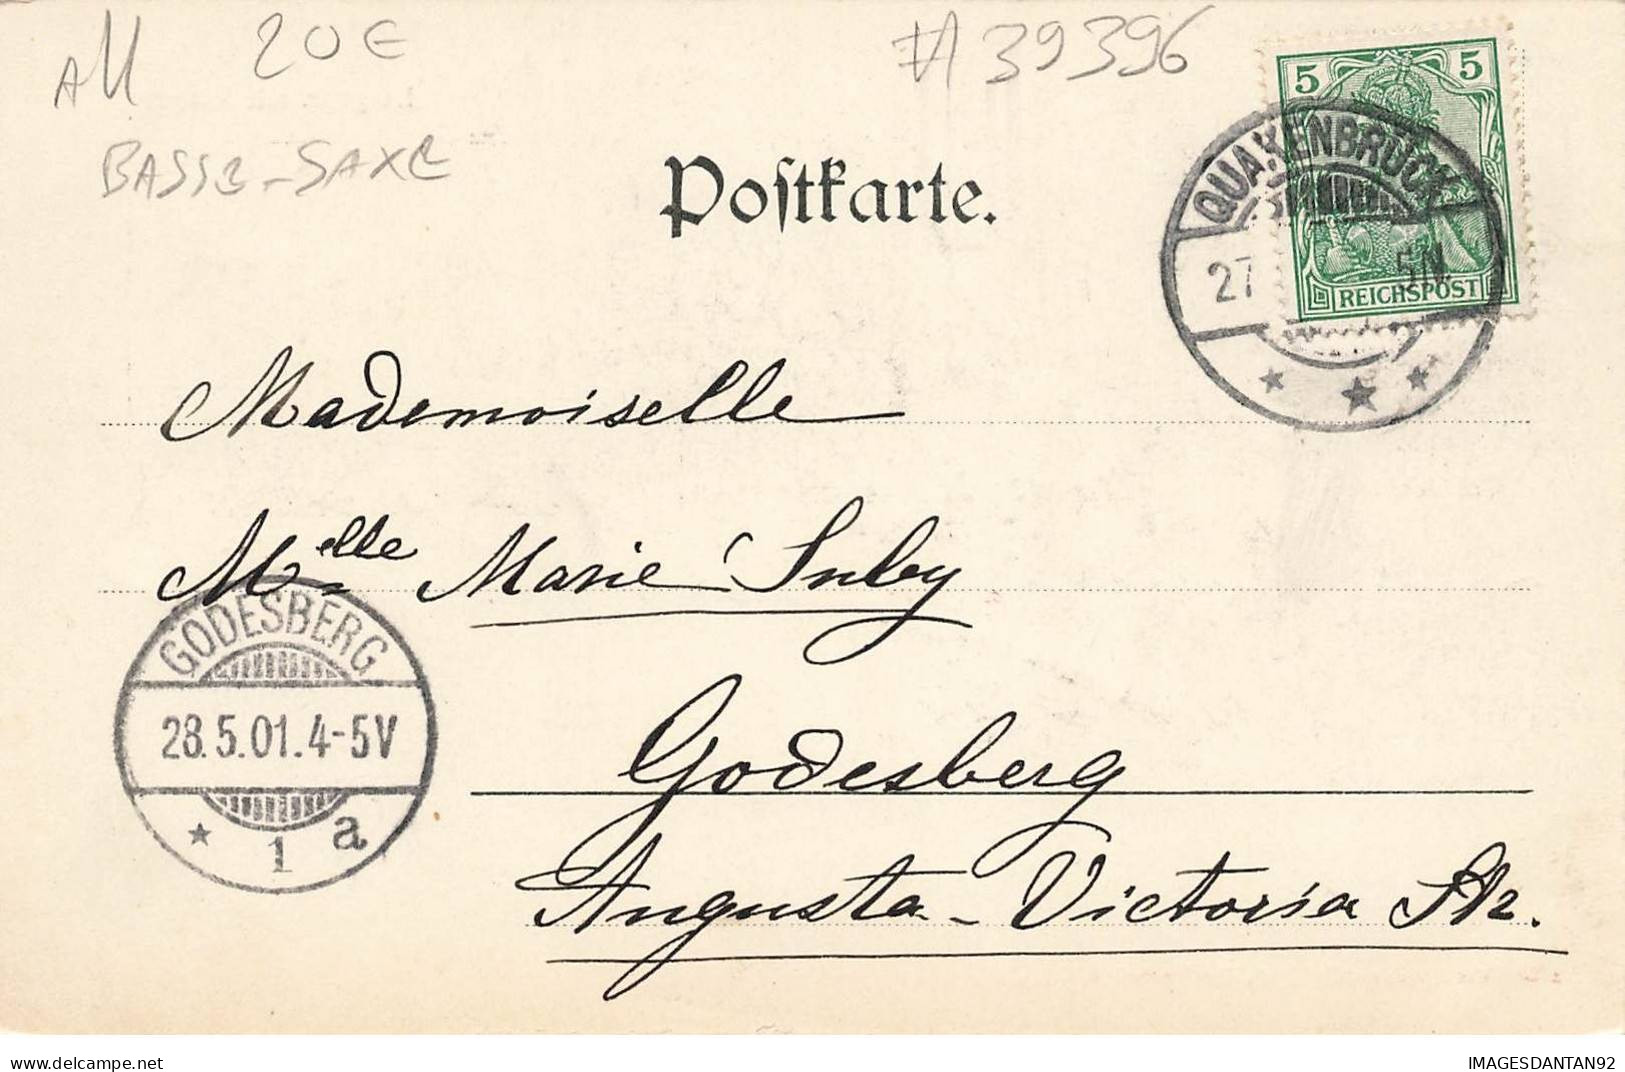 All 20€ #39396
BASSE-SAXE
5 5
Postkarte.
QUAKENBRÜCK
27 5N.
REICHSPOST
Mademoiselle
Melle Marie
GODESBERG
28.5.01.4-5V
1 a
Godesberg
Augusta-Victoria Str.
delcampe.net
IMAGESDANTAN92